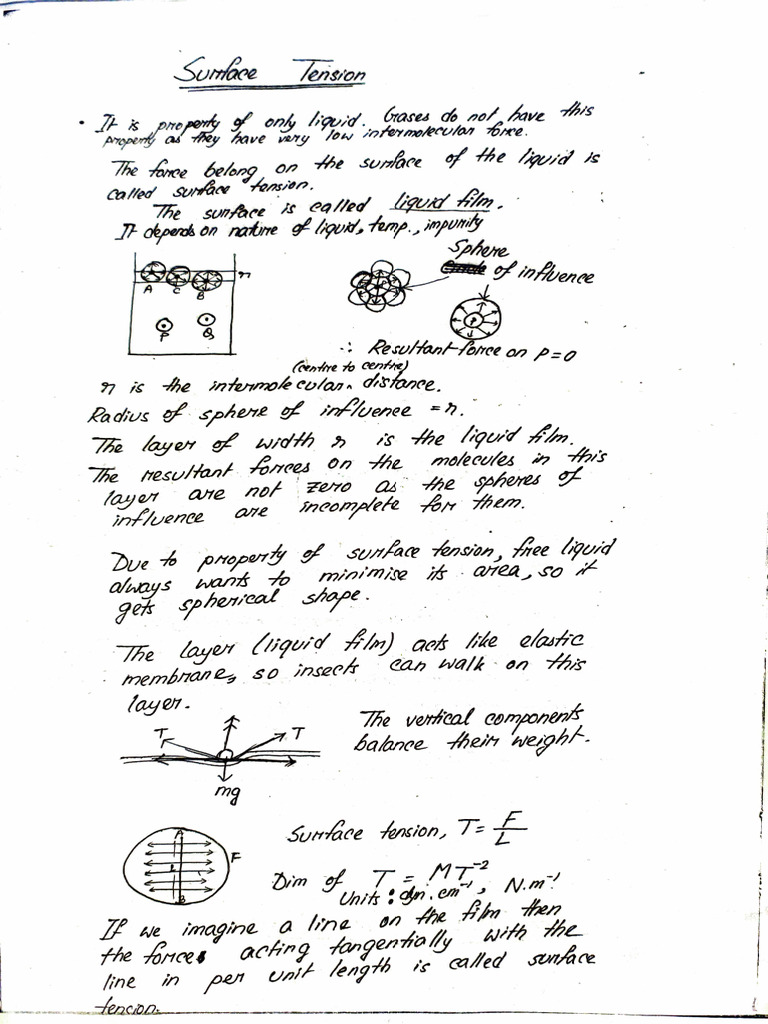 Surface Tension
• It is property of only liquid. Gases do not have this
property as they have very low intermolecular force.
The force belong on the surface of the liquid is
called surface tension.
The surface is called liquid film.
It depends on nature of liquid, temp., impurity
Sphere
of influence
A C B r
P Q
P
P
∴ Resultant force on P = 0
(centre to centre)
r is the intermolecular distance.
Radius of sphere of influence = r.
The layer of width r is the liquid film.
The resultant forces on the molecules in this
layer are not zero as the spheres of
influence are incomplete for them.
Due to property of surface tension, free liquid
always wants to minimise its area, so it
gets spherical shape.
The layer (liquid film) acts like elastic
membrane, so insects can walk on this
layer.
The vertical components
balance their weight.
T T
mg
Surface tension, T = F/L
A
L F
B
Dim of T = MT⁻²
Units : dyn. cm⁻¹, N.m⁻¹
If we imagine a line on the film then
the force acting tangentially with the
line in per unit length is called surface
tencion.